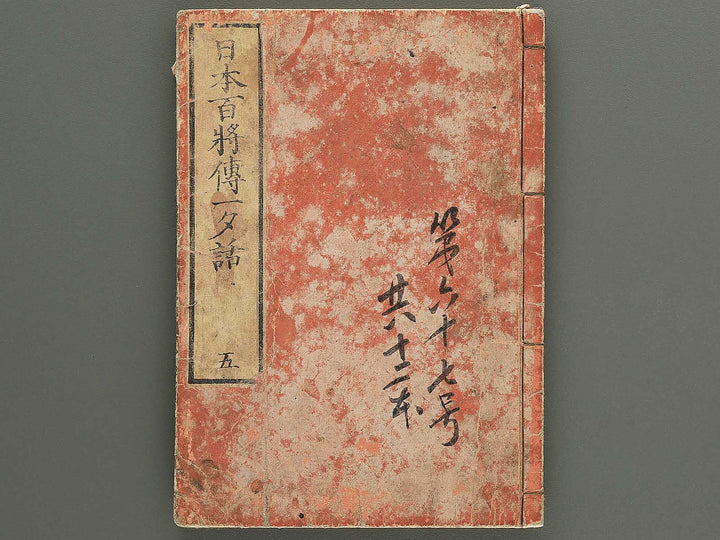 第六十七号
共十二本
日本百將傳一夕話 五